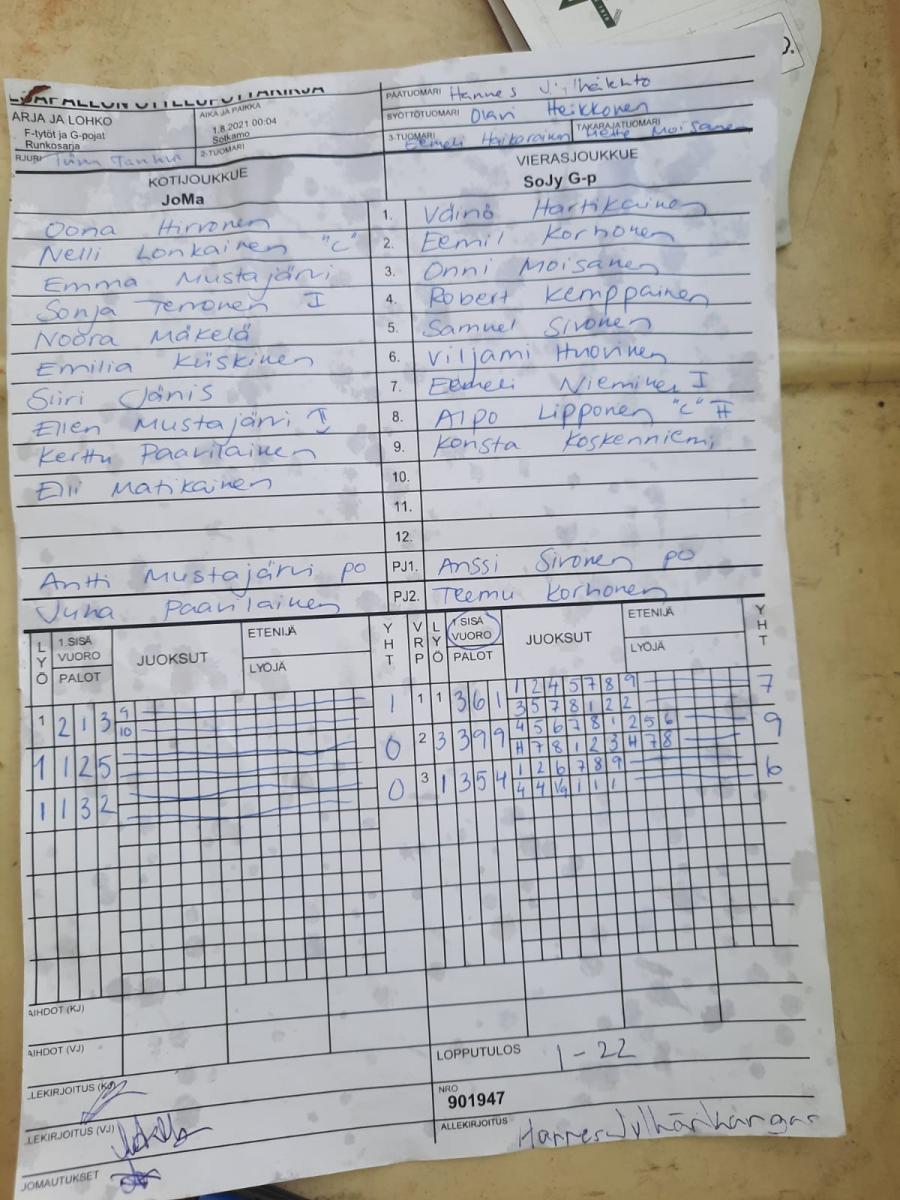 ARJA JA LOHKO
F-tytöt ja G-pojat
Runkosarja
AIKA JA PAIKKA
1.8.2021 00:04
Sotkamo
2-TUOMARI
PÄÄTUOMARI Hannes
SYÖTTÖTUOMARI Olavi Heikkonen
3-TUOMARI Eemeli
TAKARAJATUOMARI Moisanen
KOTIJOUKKUE
JoMa
VIERASJOUKKUE
SoJy G-p
Oona Hirvonen 1. Väinö Hartikainen
Nelli Lonkainen "C" 2. Eemil Korhonen
Emma Mustajärvi 3. Onni Moisanen
Sonja Terronen I 4. Robert Kemppainen
Noora Mäkelä 5. Samuel Sivonen
Emilia Kiiskinen 6. Viljami Huovinen
Siiri Jänis 7. Eemeli Nieminen I
Ellen Mustajärvi II 8. Alpo Lipponen "C" II
Kerttu Paavilainen 9. Konsta Koskenniemi
Elli Matikainen 10.
11.
12.
Antti Mustajärvi po PJ1. Anssi Sivonen po
Juha Paavilainen PJ2. Teemu Korhonen
LYÖ 1.SISÄ VUORO PALOT JUOKSUT ETENIJÄ LYÖJÄ YHT VRP LYÖ 1.SISÄ VUORO PALOT JUOKSUT ETENIJÄ LYÖJÄ YHT
1 2 1 3 9 1 1 1 3 6 1 1 2 4 5 7 8 9 7
10 3 5 7 8 1 2 2
1 1 2 5 0 2 3 3 9 9 4 5 6 7 8 1 2 5 6 9
4 7 8 1 2 3 4 7 8
1 1 3 2 0 3 1 3 5 4 1 2 6 7 8 9 6
4 4 1 1 1
AIHDOT (KJ)
AIHDOT (VJ)
LLEKIRJOITUS (KJ)
LOPPUTULOS 1-22
NRO
901947
LLEKIRJOITUS (VJ)
ALLEKIRJOITUS
JOMAUTUKSET